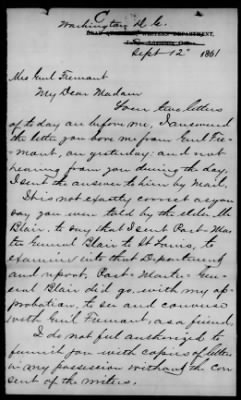 Washington D.C.
Sept 12" 1861
Mrs Genl Fremont
My Dear Madam
Your two letters
of to day are before me. I answered
the letter you bore me from Genl Fre-
mont, on yesterday; and not
hearing from you during the day,
I sent the answer to him by mail.
It is not exactly correct as you
say you were told by the elder Mr
Blair, to say that I sent Post-Mas
ter General Blair to St Louis, to
examine into that Department
and report. Post-Master-Gen-
eral Blair did go, with my ap-
probation, to see and converse
with Genl Fremont, as a friend.
I do not feel authorized to
furnish you with copies of letters
in my possession without the con
sent of the writers.